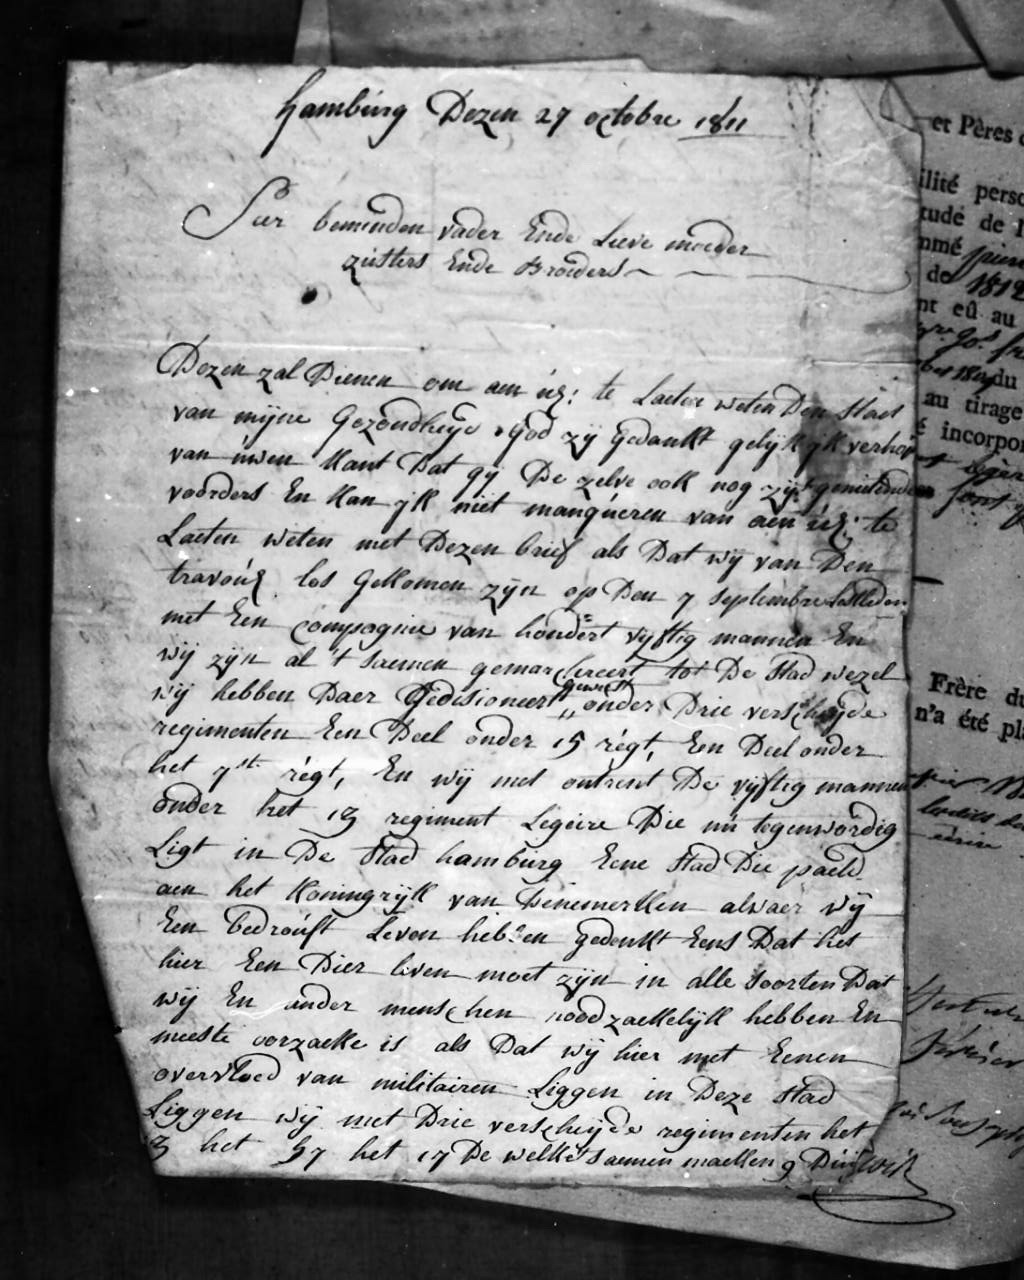 hambúrg Dezen 27 octobre 1811
Seer beminden vader Ende Lieve moeder
zústers Ende Broeders
Dezen zal Dienen om aen úE: te Laeten weten Den staet
van mijne Gezondheijd, God zij Gedankt gelijk ijk verhop
van úwen kant Dat gij De zelve ook nog zijt genietende
voorders En kan ijk niet manqúeren van aen úE; te
Laeten weten met Dezen brief als Dat wij van Den
travoúE los Gekomen zijn op Den 7 septembre Lestleden
met Een Compagnie van hondert vijftig mannen En
wij zijn al 't saemen gemarcheert tot De stad wezel
wij hebben Daer Gedisioneert geweest onder Drie verscheijde
regimenten Een Deel onder 15 régt, Een Deel onder
het 7ste régt, En wij met ontrent De vijftig mannen
onder het 13 regiment Legeire Die nú tegenwordig
Ligt in De stad hamburg Eene stad Die paeld
aen het koningrijk van Denemerken alwaer wij
Een bedroúft Leven hebben gedenkt Eens Dat het
hier Een Dier leven moet zijn in alle soorten Dat
wij En ander menschen noodzaekelijk hebben En
meeste oorzaeke is als Dat wij hier met Eenen
overvloed van militairen Liggen in Deze stad
Liggen wij met Drie verscheijde regimenten het
3 het 57 het 17 De welke saemen maeken 9 Duijzend
et Pères
ilité perso
tude de l
mmé
de 1812
nt eû au
du
au tirage
é incorpor
Frère du
n'a été pla